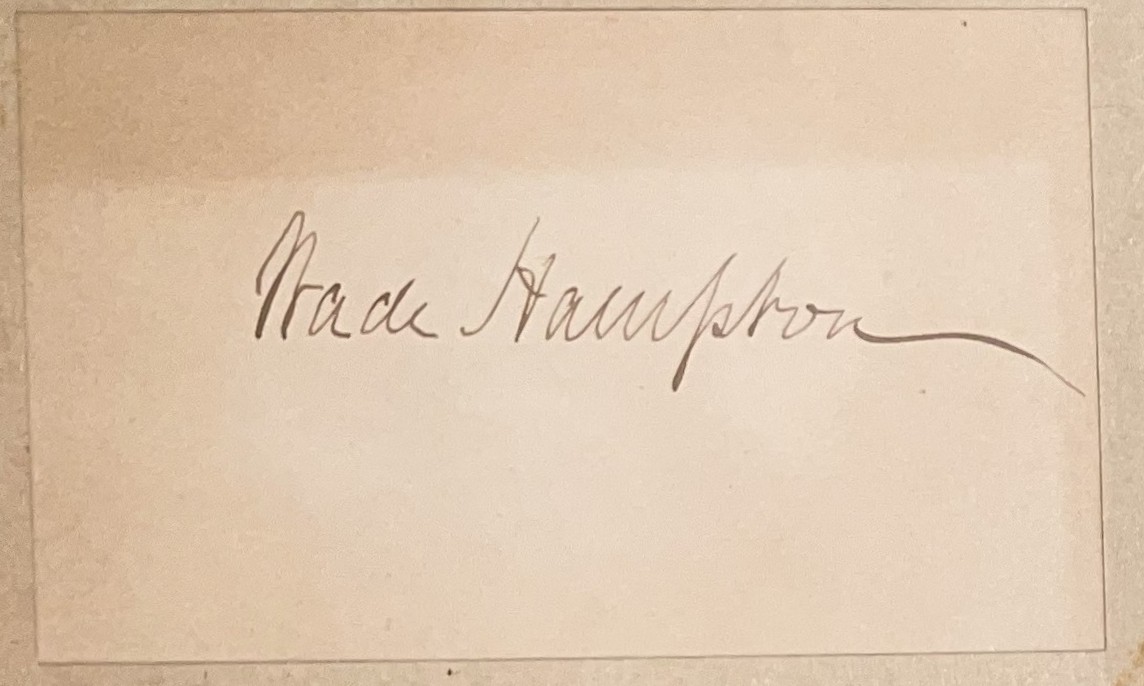 Wade Hampton